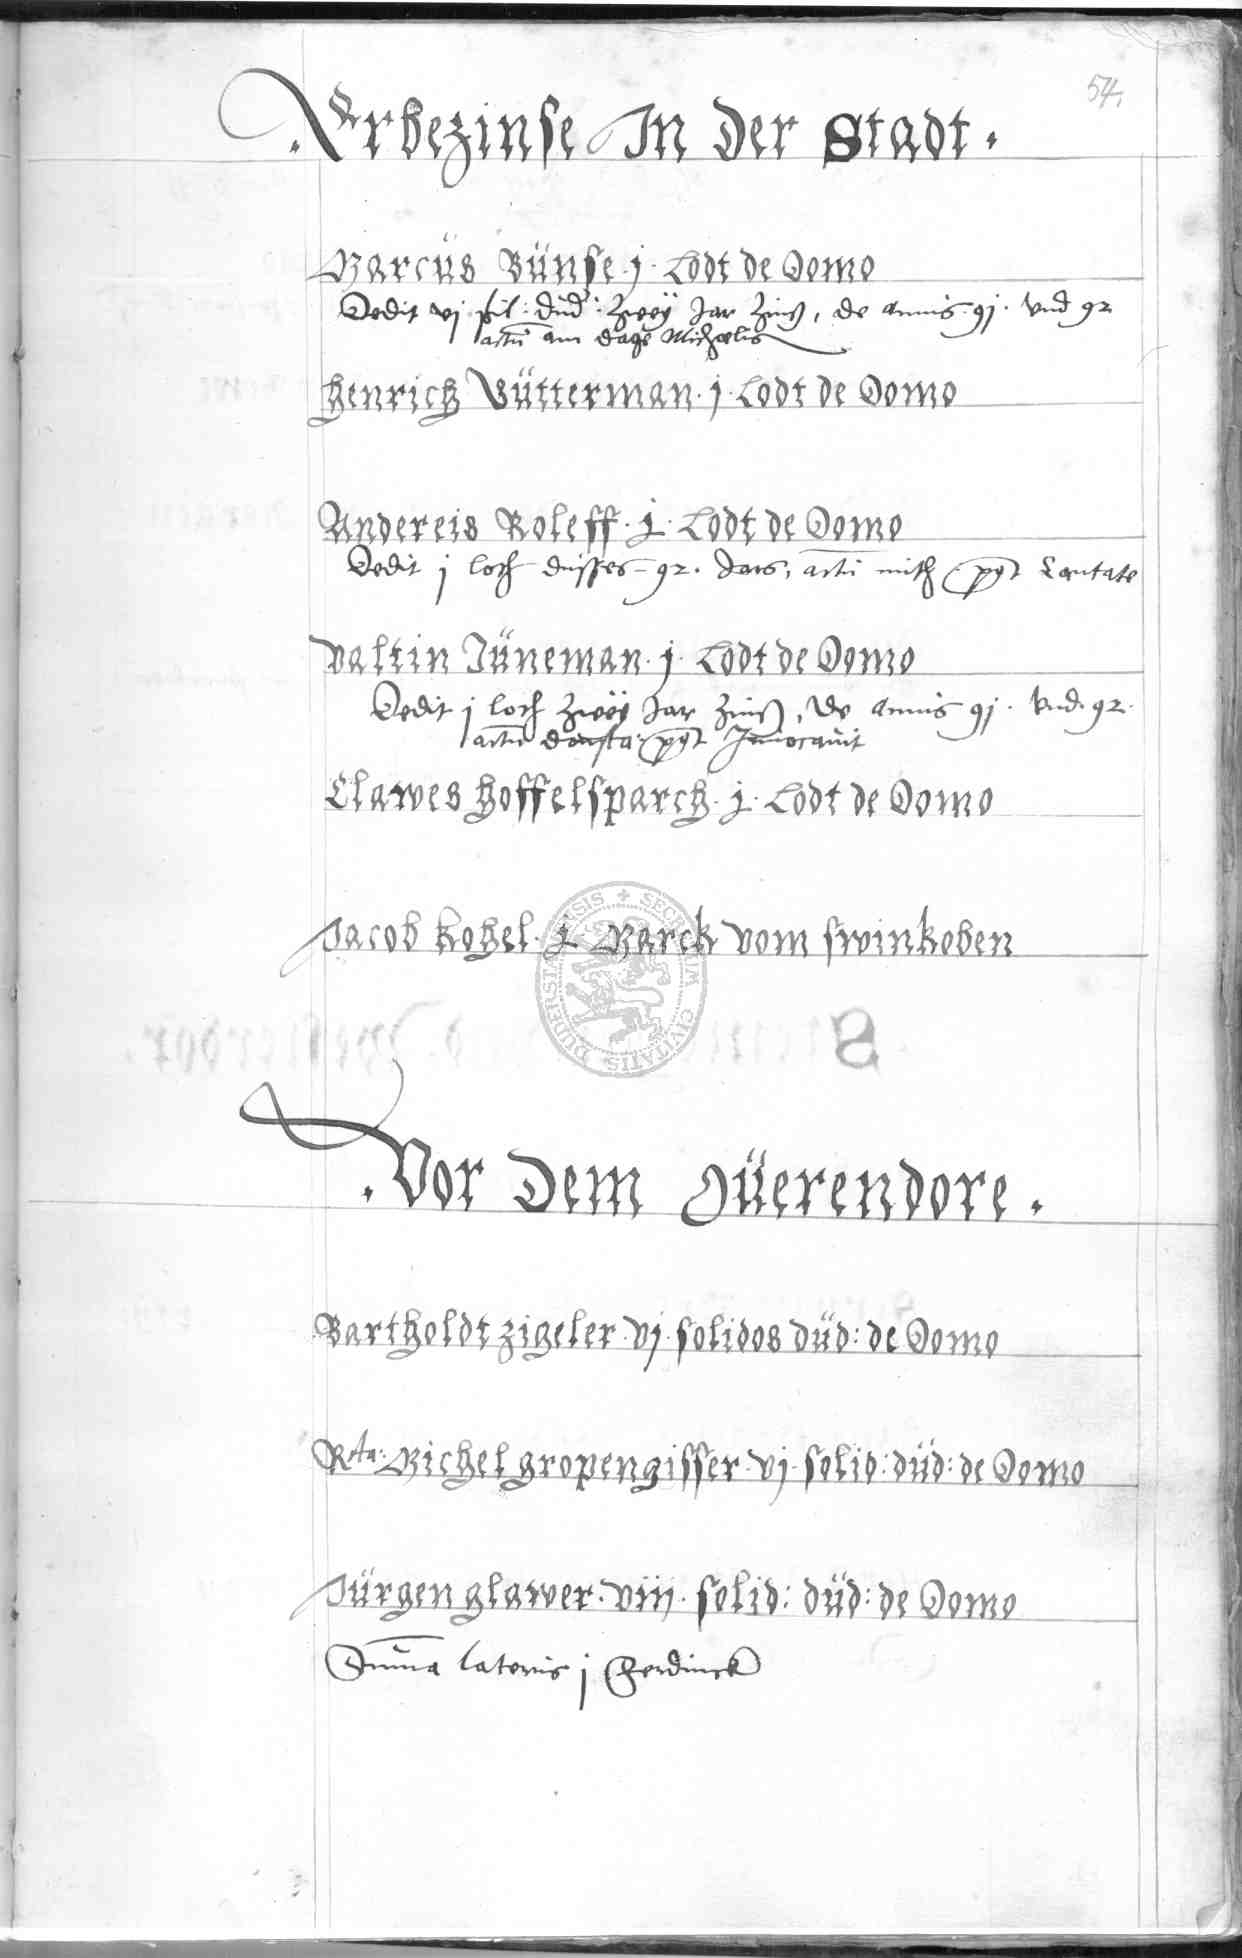 54.
. Erbezinse In der Stadt .
Marcus Bünse . j . Lodt de Domo
Dedit vj sil : düd : zweÿ Jar Zinß , de annis . 91 . vnd 92
actū am dage Michaelis
Henrich Bütterman . j . Lodt de Domo
Andereis Roleff . j . Lodt de Domo
Dedit j loth düsses 92 . Jars , actū mith . pꝰt Cantate
Valtin Jüneman . j . Lodt de Domo
Dedit j loth zweÿ Jar Zinß , de annis 91 . vnd . 92 .
actū donsta : pꝰt Inuocauit
Clawes Hoffelsparch . j . Lodt de Domo
Jacob Kohel . j Marck vom swinkoben
. Vor Dem Oüerendore .
Bartholdt zigeler . vj . solidos düd : de Domo
Rcta : Michel gropengisser . vj . solid : düd : de Domo
Jürgen glawer . viij . solid : düd : de Domo
Sūma lateris j Ferdinck
SECRETUM CIVITATIS DUDERSTADENSIS